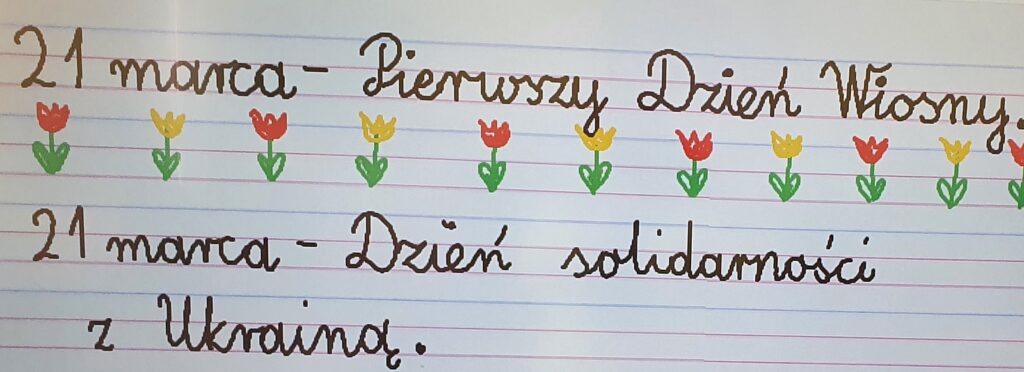 21 marca - Pierwszy Dzień Wiosny.
21 marca - Dzień solidarności
z Ukrainą.